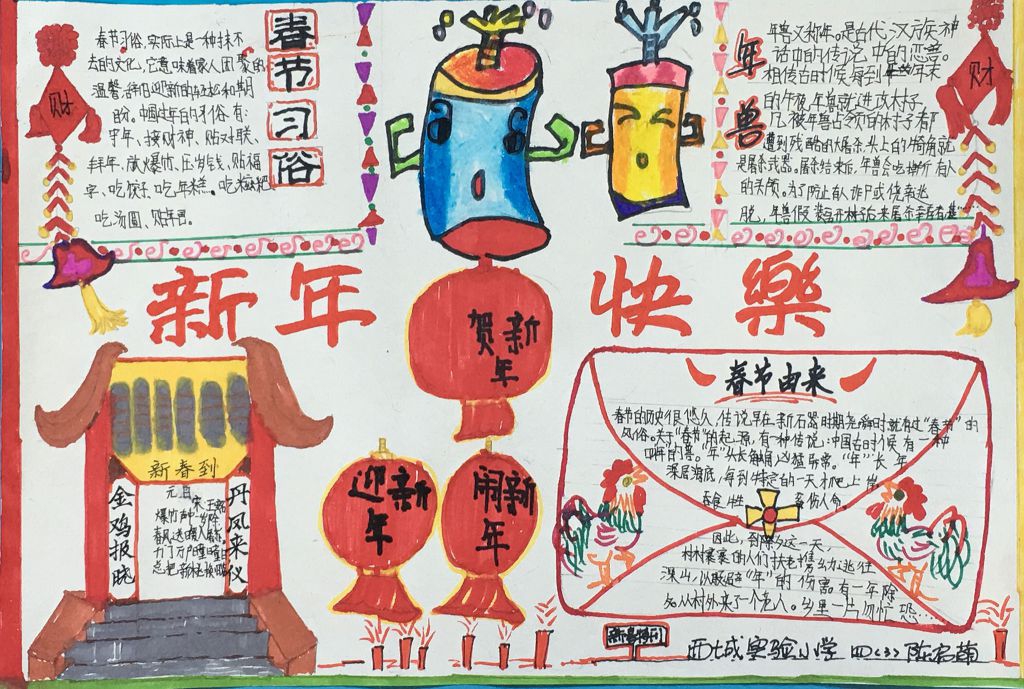 春节习俗
春节习俗,实际上是一种抹不
去的文化,它意味着家人团聚的
温馨,辞旧迎新的
和期
盼。中国过年的习俗有:
守年、接财神、贴对联、
拜年、放爆竹、压岁钱、贴福
字、吃饺子、吃年糕。吃
吃汤圆、贴年画。
财
年兽
年兽又称年。是古代汉族神
话中的传说中的恶兽。
相传古时候,每到年末
的午夜,年兽就
进攻村子,
凡被年兽占领的村子都
遭到残酷的大屠杀,头上的犄角就
是屠杀武器。屠杀结束后,年兽会吃掉所有人
的头颅。为了防止有人诈尸或侥幸逃
脱,年兽假装离开
财
新年快樂
贺新年
迎新年
闹新年
新春到
金鸡报晓
丹凤来仪
元日
宋 王
爆竹声
春风送暖入
千门万户曈曈日
总把新桃换
春节由来
春节的历史很悠久,传说早在新石器时期尧舜时就有过“春节”的
风俗。关于“春节”的起源,有一种传说:中国古时候有一种
叫年的兽。“年”头长触角,凶猛异常。“年”长年
深居海底,每到特定的一天才爬上岸
吞食牲
伤人命。
因此,到除夕这一天,
村村寨寨的人们扶老携幼逃往
深山,以躲避“年”的伤害。有一年除
夕从村外来了个老人。乡里一片匆忙恐…
新春特刊
西七城实验小学 四(3)